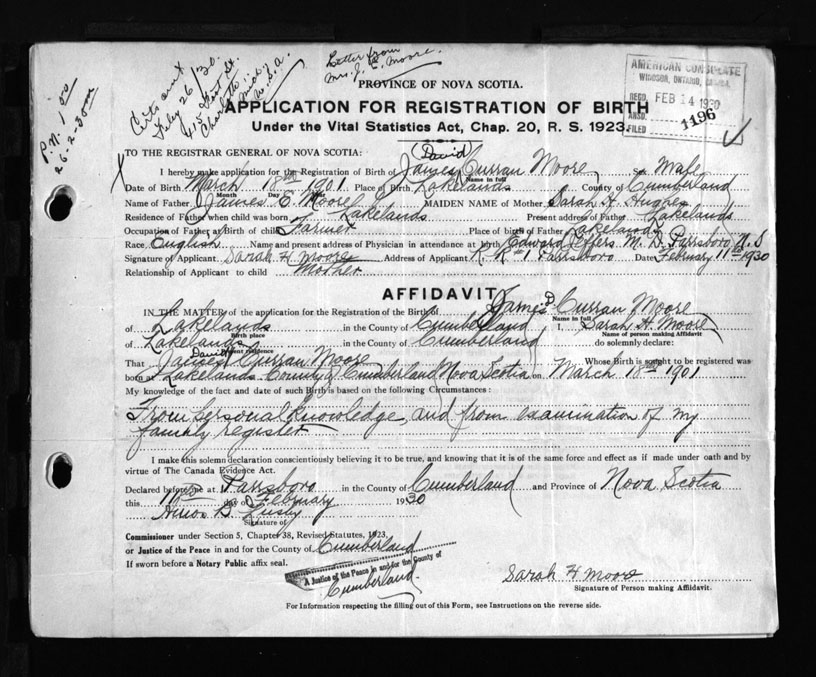 Letter from
Mrs. J. E. Moore.
Certs sent
Feby 26/30.
415 East St.
Charlotte, Mich
U.S.A.
P.N. 1.00
26-2-30
AMERICAN CONSULATE
WINDSOR, ONTARIO, CANADA.
REGD. FEB 14 1930
ANSD.
FILED 1196
PROVINCE OF NOVA SCOTIA.
APPLICATION FOR REGISTRATION OF BIRTH
Under the Vital Statistics Act, Chap. 20, R. S. 1923.
TO THE REGISTRAR GENERAL OF NOVA SCOTIA:
(David)
I hereby make application for the Registration of Birth of James Curran Moore Sex Male
Name in full
Date of Birth March 18th 1901 Place of Birth Lakelands County of Cumberland
Month Day Year
Name of Father James E. Moore MAIDEN NAME of Mother Sarah H. Hughes
Residence of Father when child was born Lakelands Present address of Father Lakelands
Occupation of Father at Birth of child Farmer Place of birth of Father Lakelands
Race English Name and present address of Physician in attendance at birth Edward Jeffers M. D. Parrsboro N. S
Signature of Applicant Sarah H Moore Address of Applicant R. R #1 Parrsboro Date February 11th 1930
Relationship of Applicant to child Mother
AFFIDAVIT
D
IN THE MATTER of the application for the Registration of the Birth of James Curran Moore
Name in full
of Lakelands in the County of Cumberland I, Sarah H. Moore
Birth place Name of person making Affidavit
of Lakelands in the County of Cumberland do solemnly declare:
Present residence
David
That James Curran Moore Whose Birth is sought to be registered was
born at Lakelands County of Cumberland Nova Scotia on March 18th 1901
My knowledge of the fact and date of such Birth is based on the following Circumstances:
From personal knowledge, and from examination of my
family register
I make this solemn declaration conscientiously believing it to be true, and knowing that it is of the same force and effect as if made under oath and by
virtue of The Canada Evidence Act.
Declared before me at Parrsboro in the County of Cumberland and Province of Nova Scotia
this day of February 1930
Signature of
Commissioner under Section 5, Chapter 38, Revised Statutes, 1923,
or Justice of the Peace in and for the County of Cumberland
If sworn before a Notary Public affix seal.
A Justice of the Peace in and for the County of
Cumberland.
Sarah H Moore
Signature of Person making Affidavit.
For Information respecting the filling out of this Form, see Instructions on the reverse side.